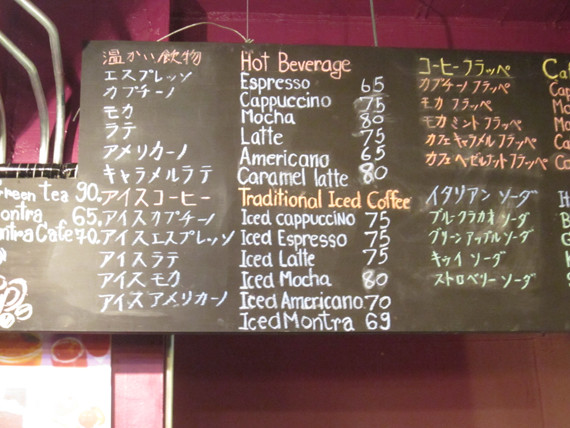 Green Tea 90.
ontra 65.
ntra Cafe 70.
温かい飲物
エスプレッソ
カプチーノ
モカ
ラテ
アメリカーノ
キャラメルラテ
アイスコーヒー
アイスカプチーノ
アイスエスプレッソ
アイスラテ
アイスモカ
アイスアメリカーノ
Hot Beverage
Espresso 65
Cappuccino 75
Mocha 80
Latte 75
Americano 65
Caramel latte 80
Traditional Iced Coffee
Iced cappuccino 75
Iced Espresso 75
Iced Latte 75
Iced Mocha 80
Iced Americano 70
Iced Montra 69
コーヒーフラッペ
カプチーノ フラッペ
モカ フラッペ
モカミントフラッペ
カフェキャラメルフラッペ
カフェヘーゼルナットフラッペ
イタリアン ソーダ
ブルークラカオ ソーダ
グリーンアップル ソーダ
キゥイ ソーダ
ストロベリー ソーダ